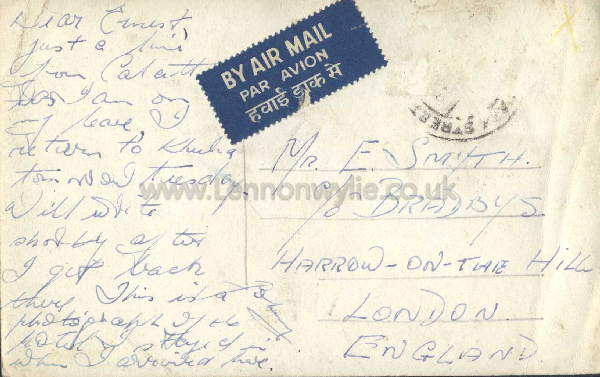 Dear Ernest
just a line
from Calcutta
I am on
my leave I
return to
tomorrow Tuesday
Will write
shortly after
I get back
there. This is a
photograph of the
Hotel I stayed in
when I arrived here
BY AIR MAIL
PAR AVION
हवाई डाक से
STREET
Mr. E. Smyth.
c/o BRADBYS
HARROW-ON-THE HILL
LONDON.
ENGLAND.
www.Lennonwylie.co.uk